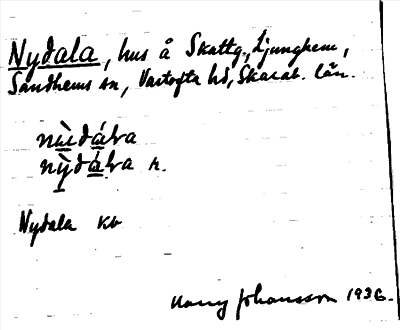 Nydala, hus å Skattg., Ljunghem,
Sandhems sn, Vartofta hd, Skarab. län.
nùdáɬa
nỳdáɬa n.
Nydala kb
Harry Johansson 1936.